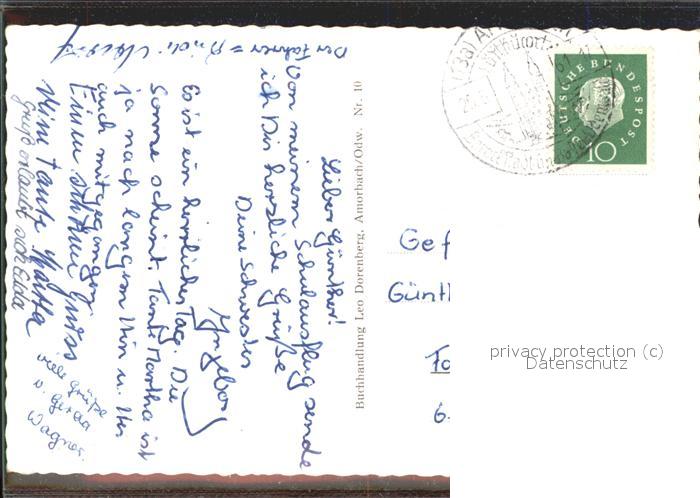 Lieber Günther!
Von meinem Schulausflug sende
ich Dir herzliche Grüße
Deine Schwester
Ingeborg
Es ist ein herrlicher Tag. Die
Sonne scheint. Tante Martha ist
ja nach langem Hin u. Her
auch mitgegangen.
Einen schönen Gruss
Deine Tante Martha
Gruß erlaubt sich
viele Grüße
v. Gerda
Wagner.
Der Fahrer =
Buchhandlung Leo Dorenberg, Amorbach/Odw. Nr. 10
DEUTSCHE BUNDESPOST
10
Gef
Günth
6.
privacy protection (c)
Datenschutz